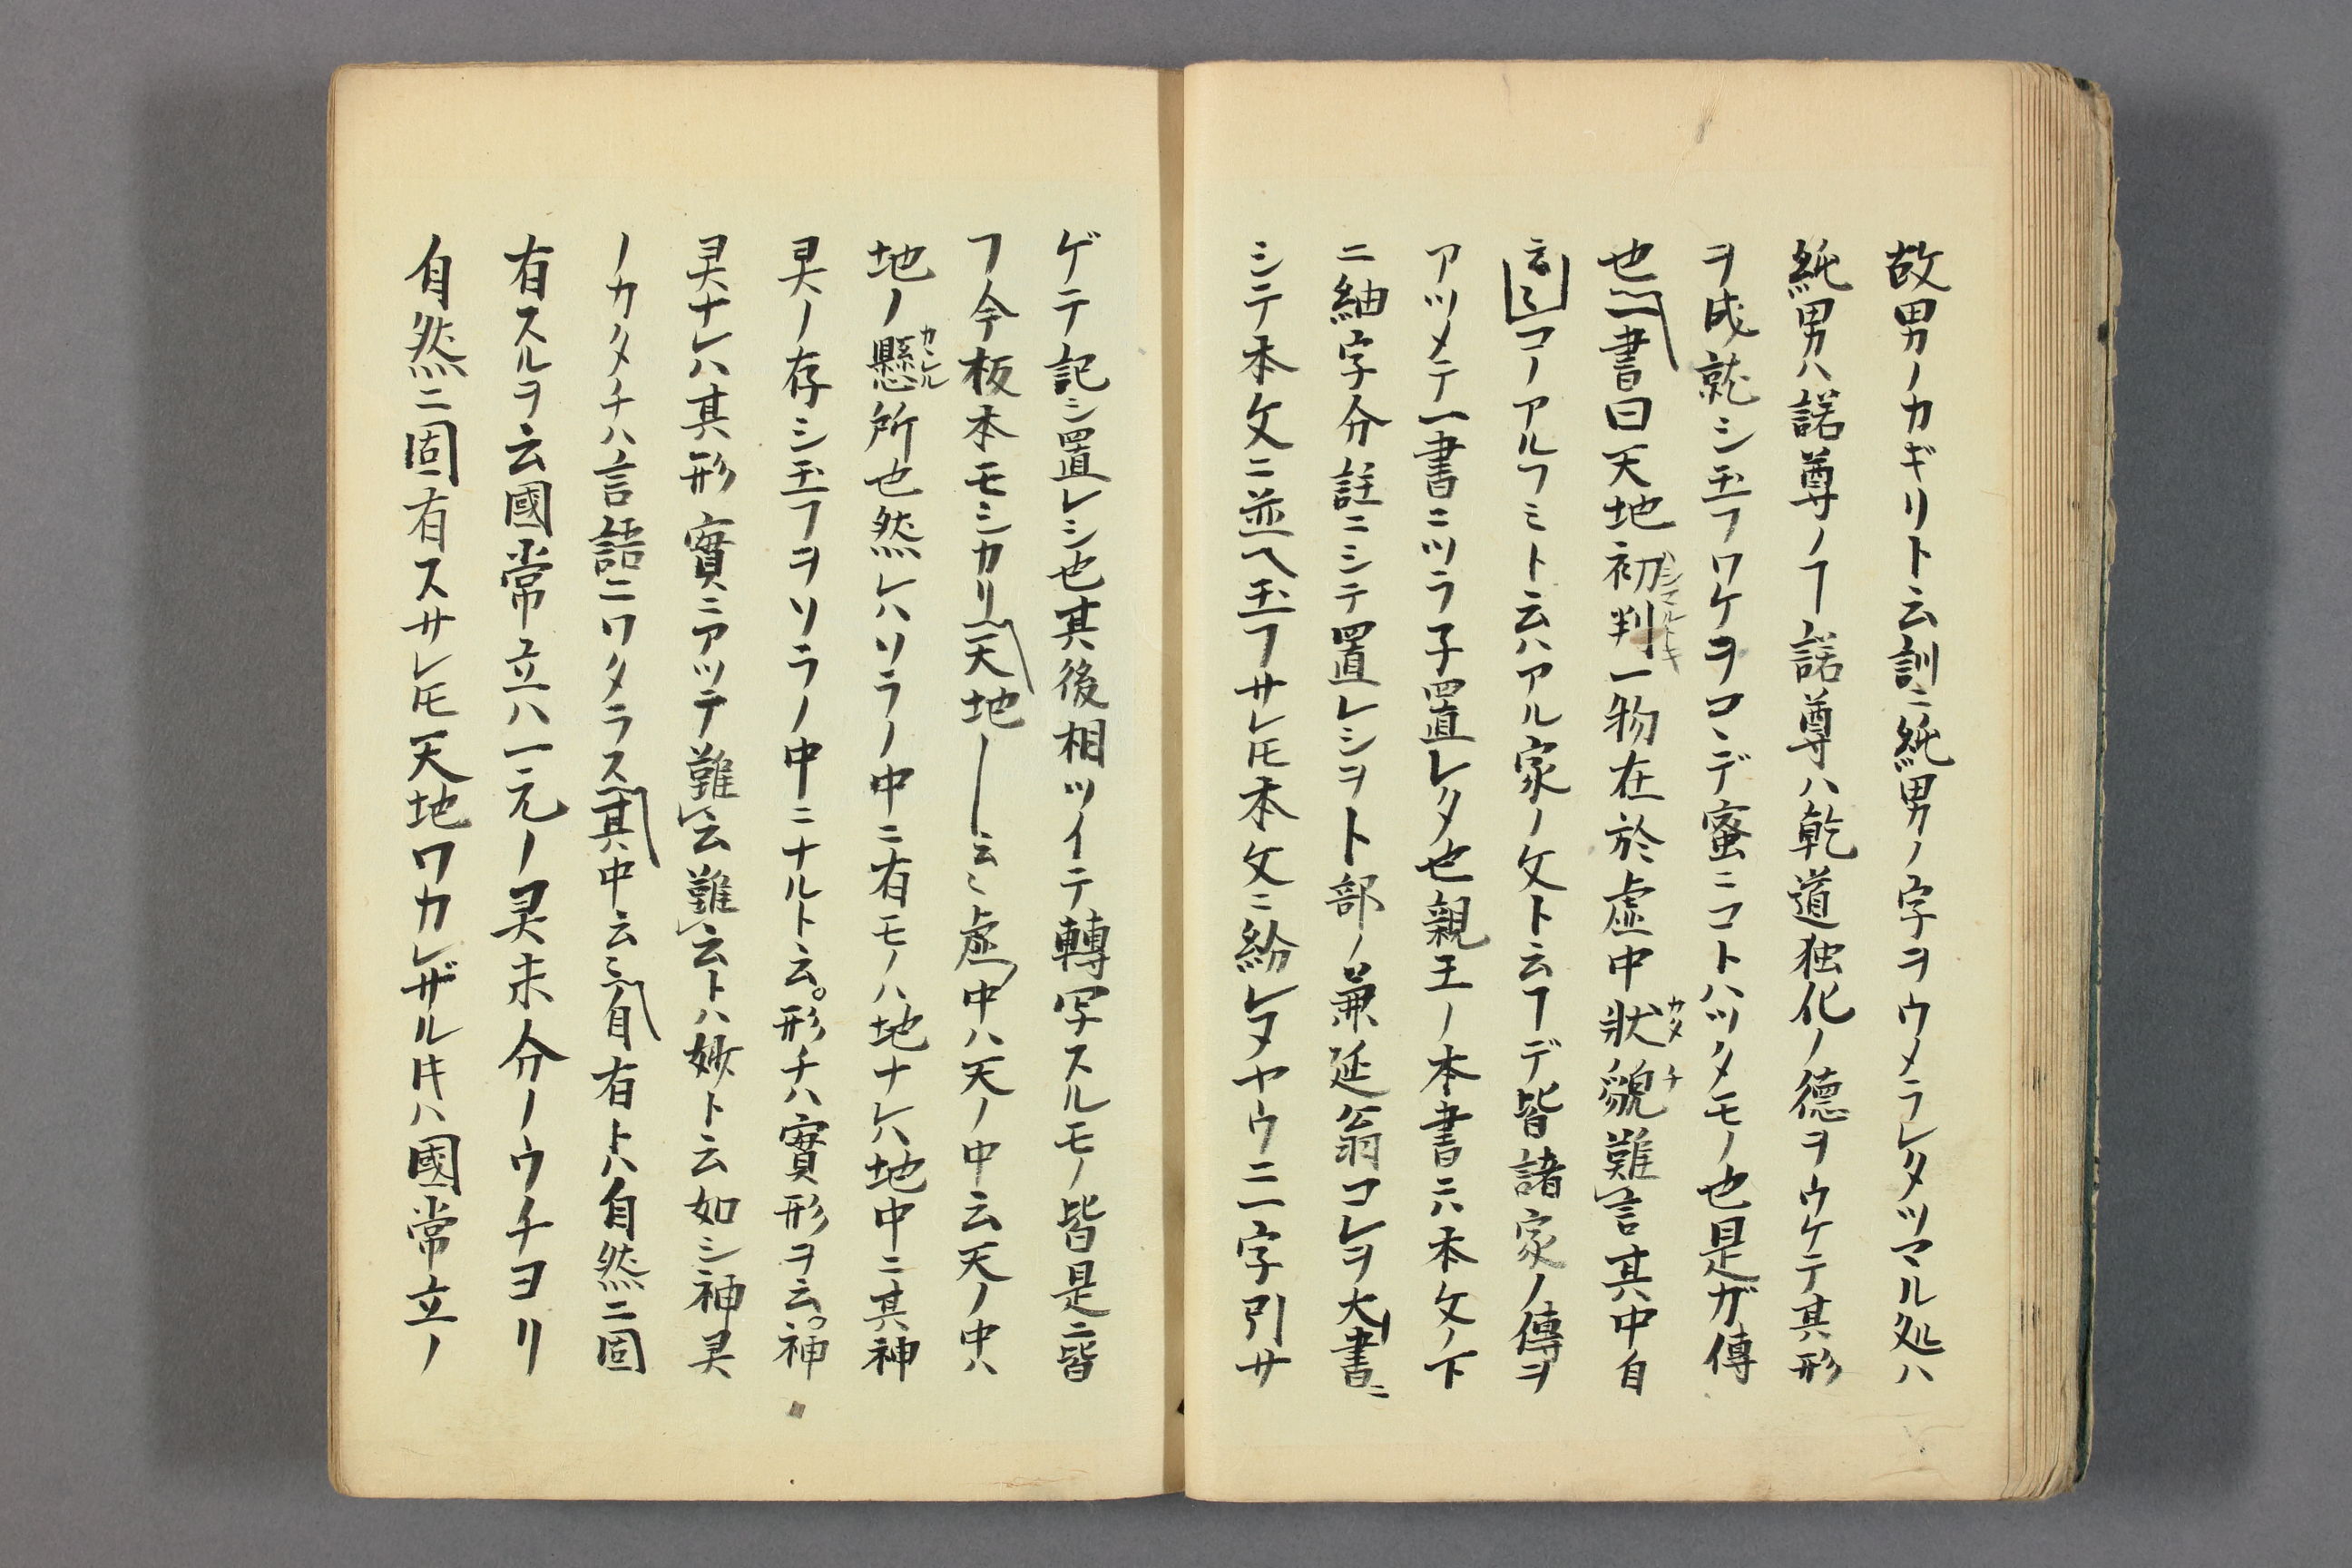 故男ノカギリト云訓ニ純男ノ字ヲウメラレタツマル処ハ
純男ハ諾尊ノヿ諾尊ハ乾道独化ノ德ヲウケテ其形
ヲ成就シ玉フワケヲコヽデ蜜ニコトハツタモノ也是ガ傳
也一書曰天地初判一物在於虚中狀貌難言其中自
云々コノアルフミト云ハアル家ノ文ト云フデ皆諸家ノ傳ヲ
アツメテ一書ニツラ子置レタ也親王ノ本書ニハ本文ノ下
ニ細字分註ニシテ置レシヲ卜部ノ兼延翁コレヲ大書ニ
シテ本文ニ並ヘ玉フサレ𪜈本文ニ紛レヌヤウニ一字引サ
ゲテ記シ置レシ也其後相ツイテ轉写スルモノ皆是ニ皆
フ今板本モシカリ天地――云々虚中ハ天ノ中云天ノ中ハ
地ノ懸カヽル所也然レハソラノ中ニ有モノハ地ナレハ地中ニ其神
灵ノ存シ玉フヲソラノ中ニナルト云。形チハ實形ヲ云。神
灵ナレハ其形實ニアツテ難云難云トハ妙ト云如シ神灵
ノカタチハ言語ニワタラス其中云々自有トハ自然ニ固
有スルヲ云國常立ハ一元ノ灵未分ノウチヨリ
自然ニ固有スサレ𪜈天地ワカレザル寸ハ國常立ノ